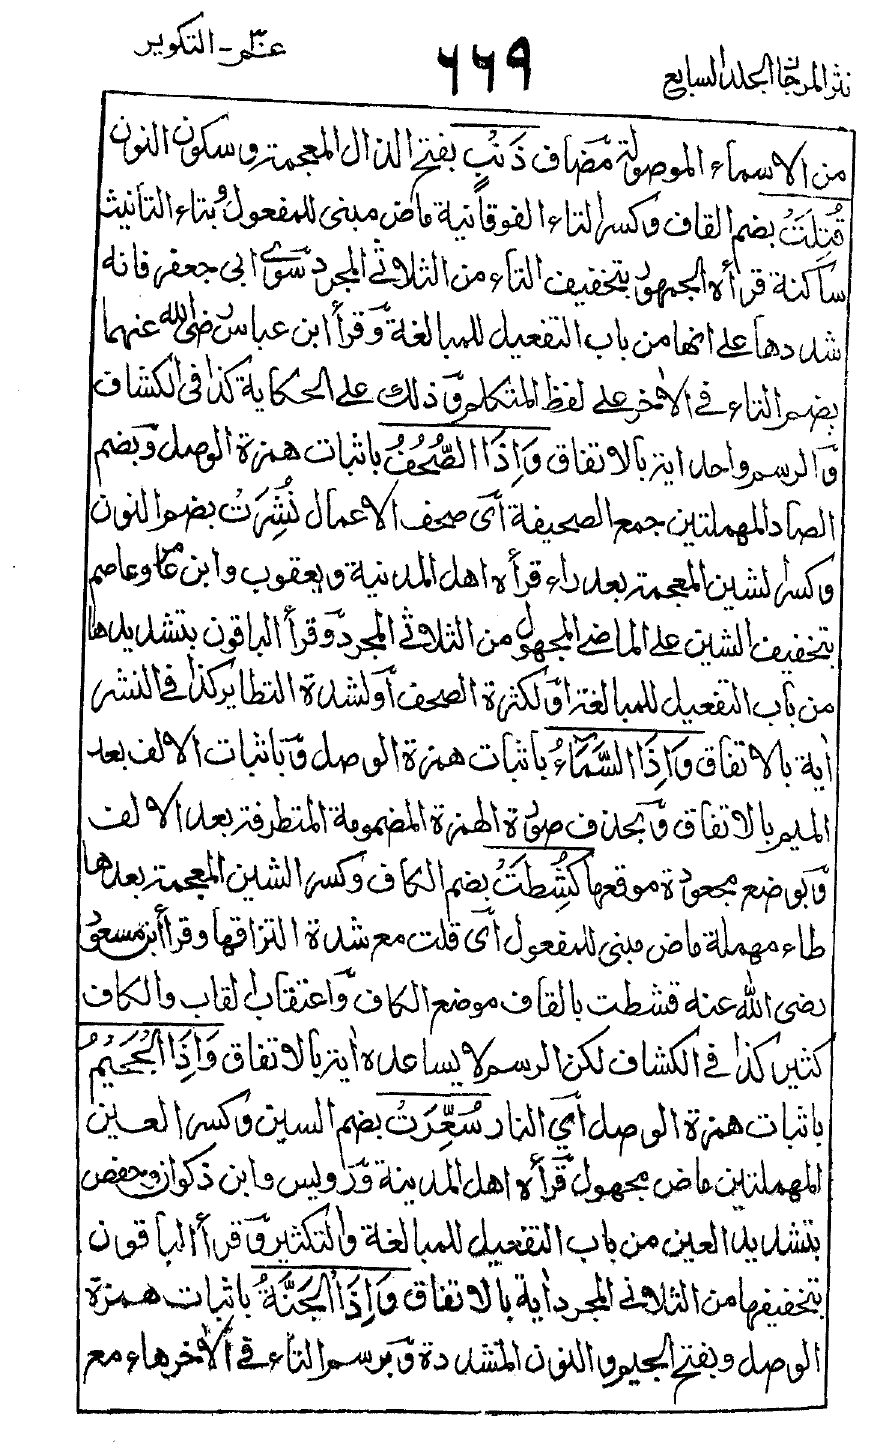 نثر المرجان الجلد السابع
٦٦٩
عمّ ٣٠ - التكوير
من الاسماء الموصولة مضاف ذَنْبٍ بفتح الذال المعجمة وسكون النون
قُتِلَتْ بضم القاف وكسر التاء الفوقانية ماض مبنى للمفعول وبتاء التأنيث
ساكنة قرأه الجمهور بتخفيف التاء من الثلاثى المجرد سوى ابى جعفر فانه
شددها على انها من باب التفعيل للمبالغة وقرأ ابن عباس رضى الله عنهما
بضم التاء فى الأخر على لفظ المتكلم وذلك على الحكاية كذا فى الكشاف
والرسم واحد اية بالاتفاق وَاِذَا الصُّحُفُ باثبات همزة الوصل وبضم
الصاد المهملتين جمع الصحيفة أى صحف الاعمال نُشِرَتْ بضم النون
وكسر الشين المعجمة بعد راء قرأه اهل المدنية ويعقوب وابن عامر وعاصم
بتخفيف الشين على الماضى المجهول من الثلاثى المجرد وقرأ الباقون بتشديدها
من باب التفعيل للمبالغة او لكثرة الصحف أو لشدة التطاير كذا فى النشر
أية بالاتفاق وَاِذَا السَّمَاءُ باثبات همزة الوصل وباثبات الالف بعد
الميم بالاتفاق وبحذف صورة الهمزة المضمومة المتطرفة بعد الالف
وبوضع مجعودة موقعها كُشِطَتْ بضم الكاف وكسر الشين المعجمة بعدها
طاء مهملة ماض مبنى للمفعول أى قلت مع شدة التزاقها وقرأ ابن مسعود
رضى الله عنه قشطت بالقاف موضع الكاف واعتقاب القاب والكاف
كثير كذا فى الكشاف لكن الرسم لا يساعده اية بالاتفاق وَاِذَا الْجَحِيْمُ
باثبات همزة الوصل أي النار سُعِّرَتْ بضم السين وكسر العين
المهملتين ماض مجهول قرأه اهل المدينة ورويس وابن ذكوان وحفص
بتشديد العين من باب التفعيل للمبالغة والتكثير وقرأ الباقون
بتخفيفها من الثلاثى المجرد اية بالاتفاق وَاِذَا الْجَنَّةُ باثبات همزة
الوصل وبفتح الجيم والنون المشددة وبرسم التاء فى الأخر هاء مع